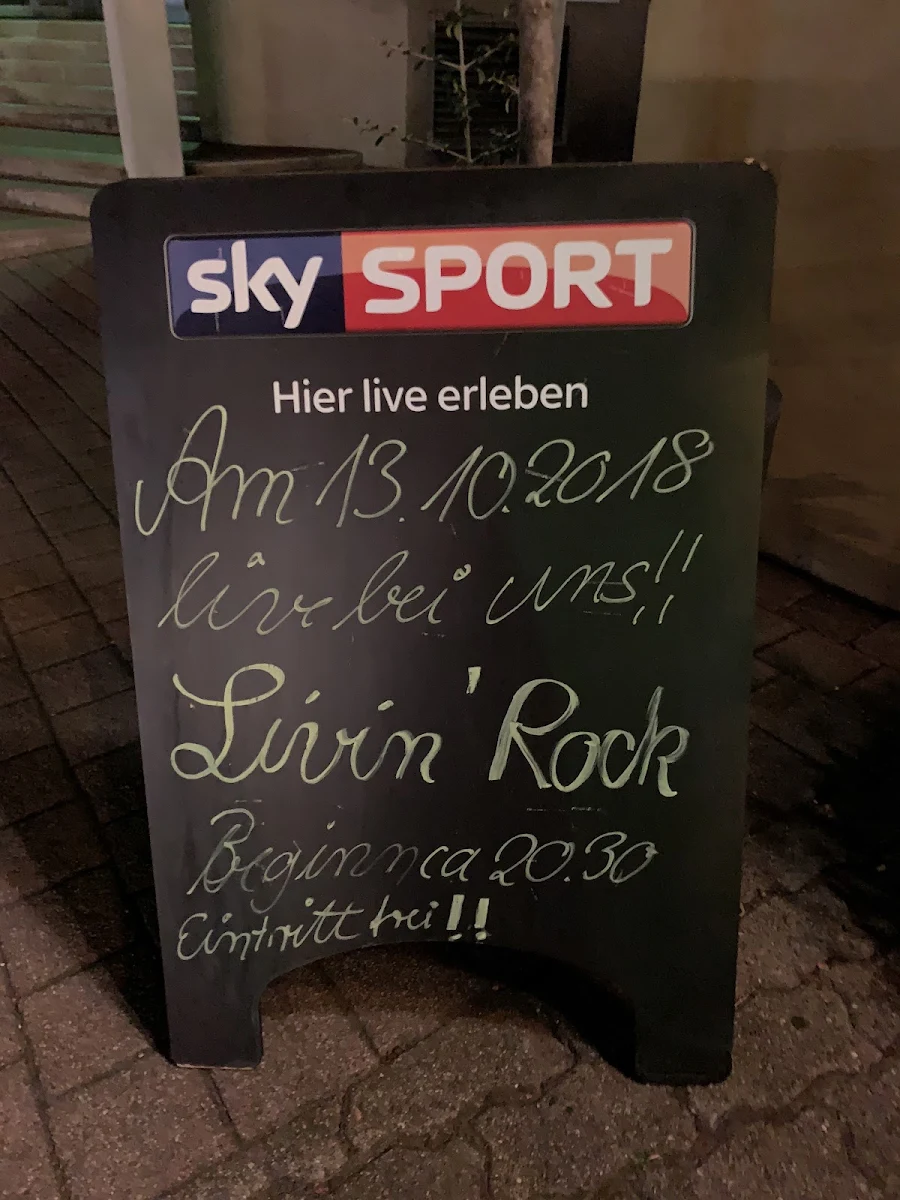 sky SPORT
Hier live erleben
Am 13.10.2018
live bei uns!!
Livin' Rock
Beginn ca 20.30
Eintritt frei!!